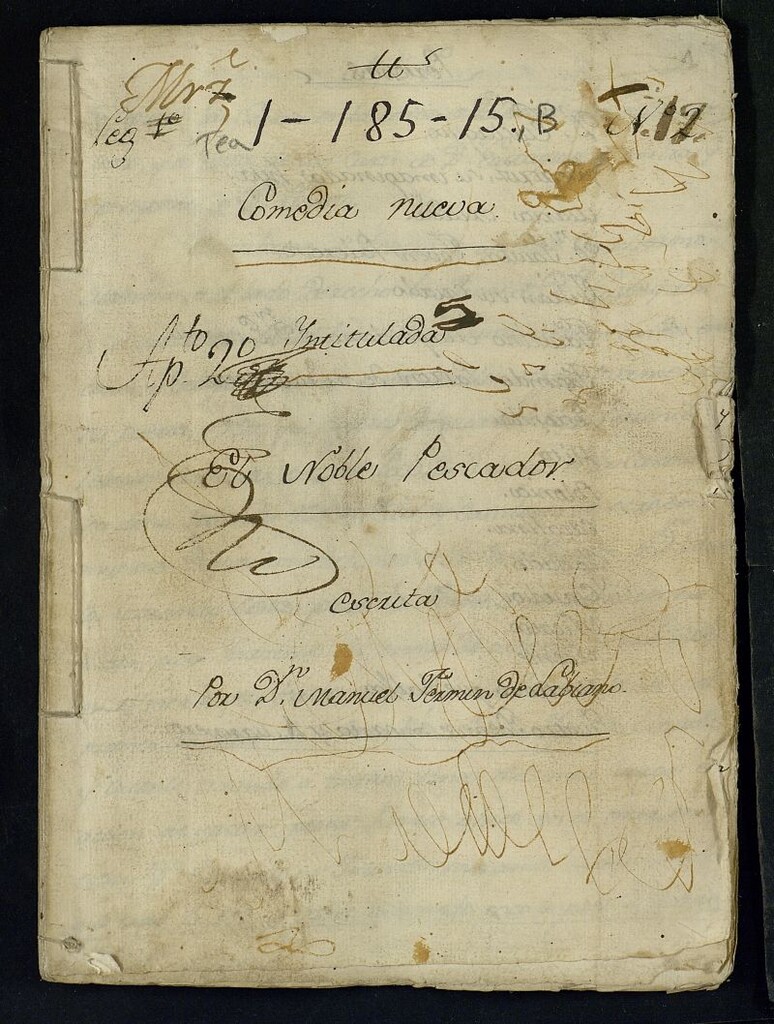 Leg.
Tea 1-185-15, B
N.º 12
Comedia nueva.
Ap.to 2.o Intitulada
El Noble Pescador.
escrita
Por D.n Manuel Fermin de Labiano.